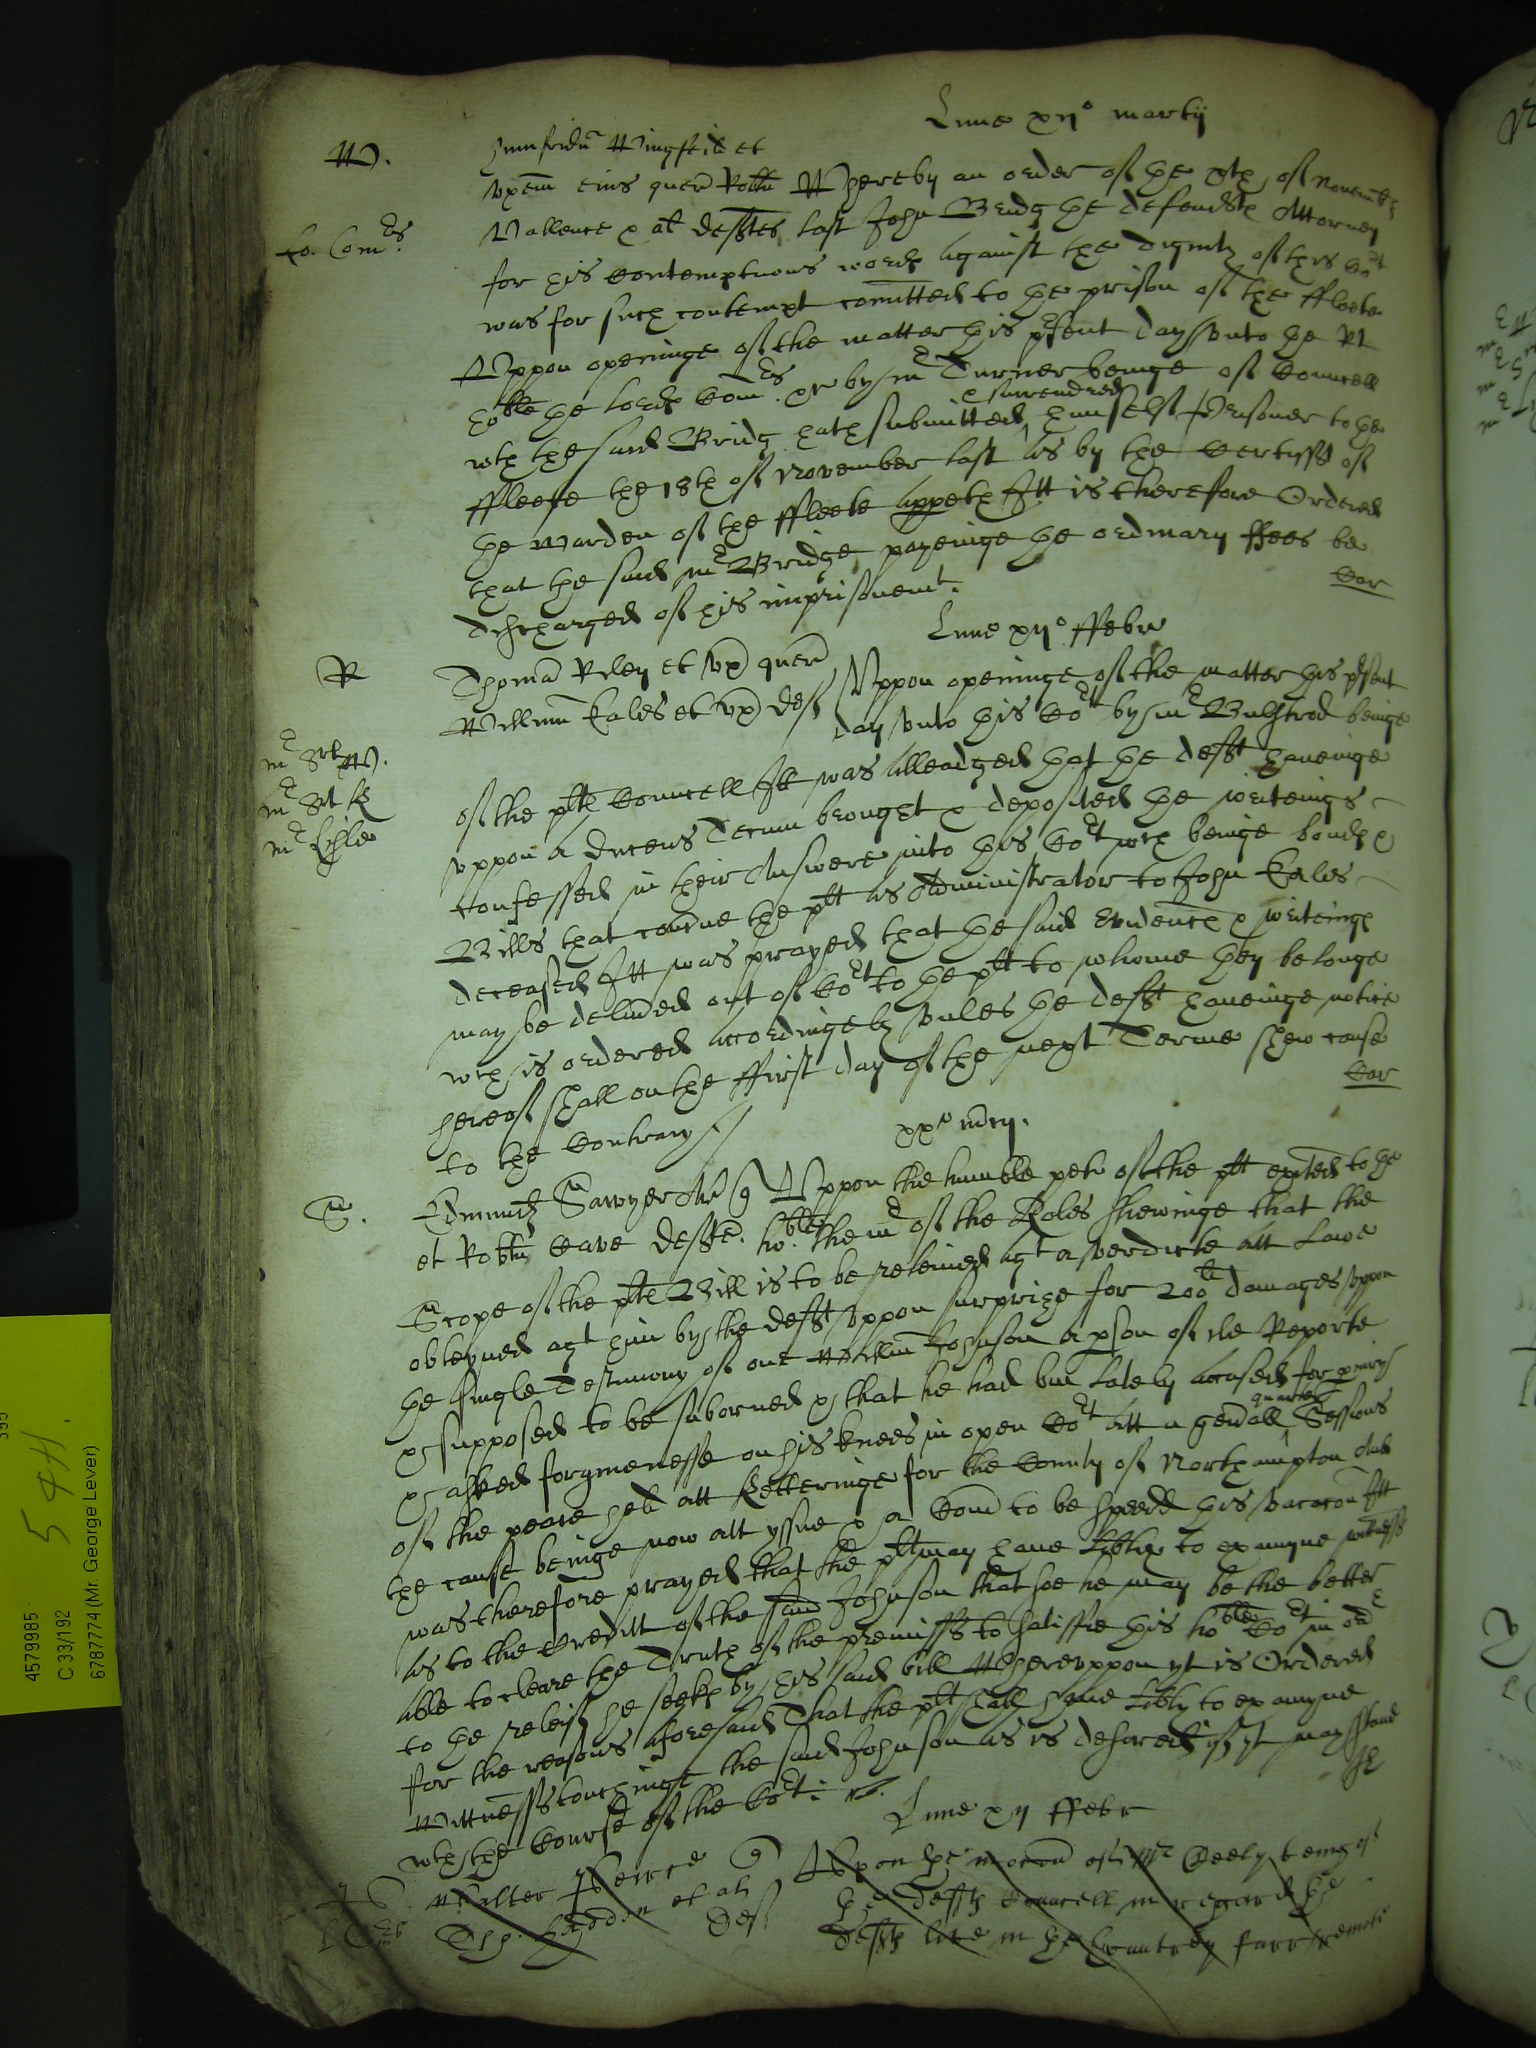 Lune xii° martij
W. Humfridu Wingfeild et
vxem eius quer Robtu Whereby an order of the xth of Novemb
Lo: Comrs. Vallence & al defftes last John Bridg the defendts Attorney
for his contemptuous words against the dignity of this Cort
was for such contempt comitted to the prison of the ffleete
Vppon openinge of the matter this prsent day vnto the Rt
hoble the lords Comrs. &c by mr Turner beinge of Councell
& surrendred
wth the said Bridg hath submitted himselfe Prisoner to the
ffleete the 18th of November last As by the Certifft of
the warden of the ffleete appeth Itt is therefore Ordered
that the said mr Bridge payeinge the ordinary ffees be
discharged of his imprisonemt.
Lune xii° ffebr
R Thoma Riley et vx quer Vppon openinge of the matter this prsent
Willimu Eales et vx def day vnto this Cort by mr Bulstrod beinge
of the plts Councell Itt was alleadged that the defft haveinge
vppon a Ducens Tecum brought & deposited the writeings
confessed in their Answere into this Cort wch beinge bonds &
Bills that concerne the plt as Administrator to John Eales
deceased Itt was prayed that the said Evidence & writeings
may be delivred out of Cort to the plt to whome they belonge
wch is ordered accordingely vnles the defft haveinge notice
hereof shall on the ffirst day of the next Terme shew cause
to the Contrary
xx° mrtij.
S. Edmund Sawyer Ar Q Vppon the humble petn of the plt exhited to the
et Robtu Cave defft. hoble the mr of the Roles shewinge that the
Scope of the plts Bill is to be releived agt a verdicte att Lawe
obteyned agt him by the defft vppon surprize for 200li damages vppon
the single Testimony of one Willm Johnson a pson of ill Reporte
& supposed to be suborned & that he had bin lately accused for periury
& asked forgivenesse on his knees in open Cort att a genall quarter Sessions
of the peace held att Ketteringe for the County of Northampton And
the cause beinge now att yssue & a Comn to be sped this vacacon Itt
was therefore prayed that the plt may have Libtie to examyne witness
as to the Creditt of the said Johnson that soe he may be the better
able to cleare the Truth of the premisses to satisfie this hoble Cort in ordr
to the releif he seeks by his said bill Whereuppon yt is Ordered
for the reasons aforesaid That the plt shall have Libty to examyne
Wittnesses touchinge the said Johnson as is desired if yt may stand
wth the Course of the Cort.
Lune xii ffebr
Walter Peirce Q Vpon the mocon of Mr Keely being of
Tho: Haddon et al def the deffts Councell in regard the
deffts live in the Countrey farr remote
4579985
C 33/192
6787774 (Mr. George Lever)